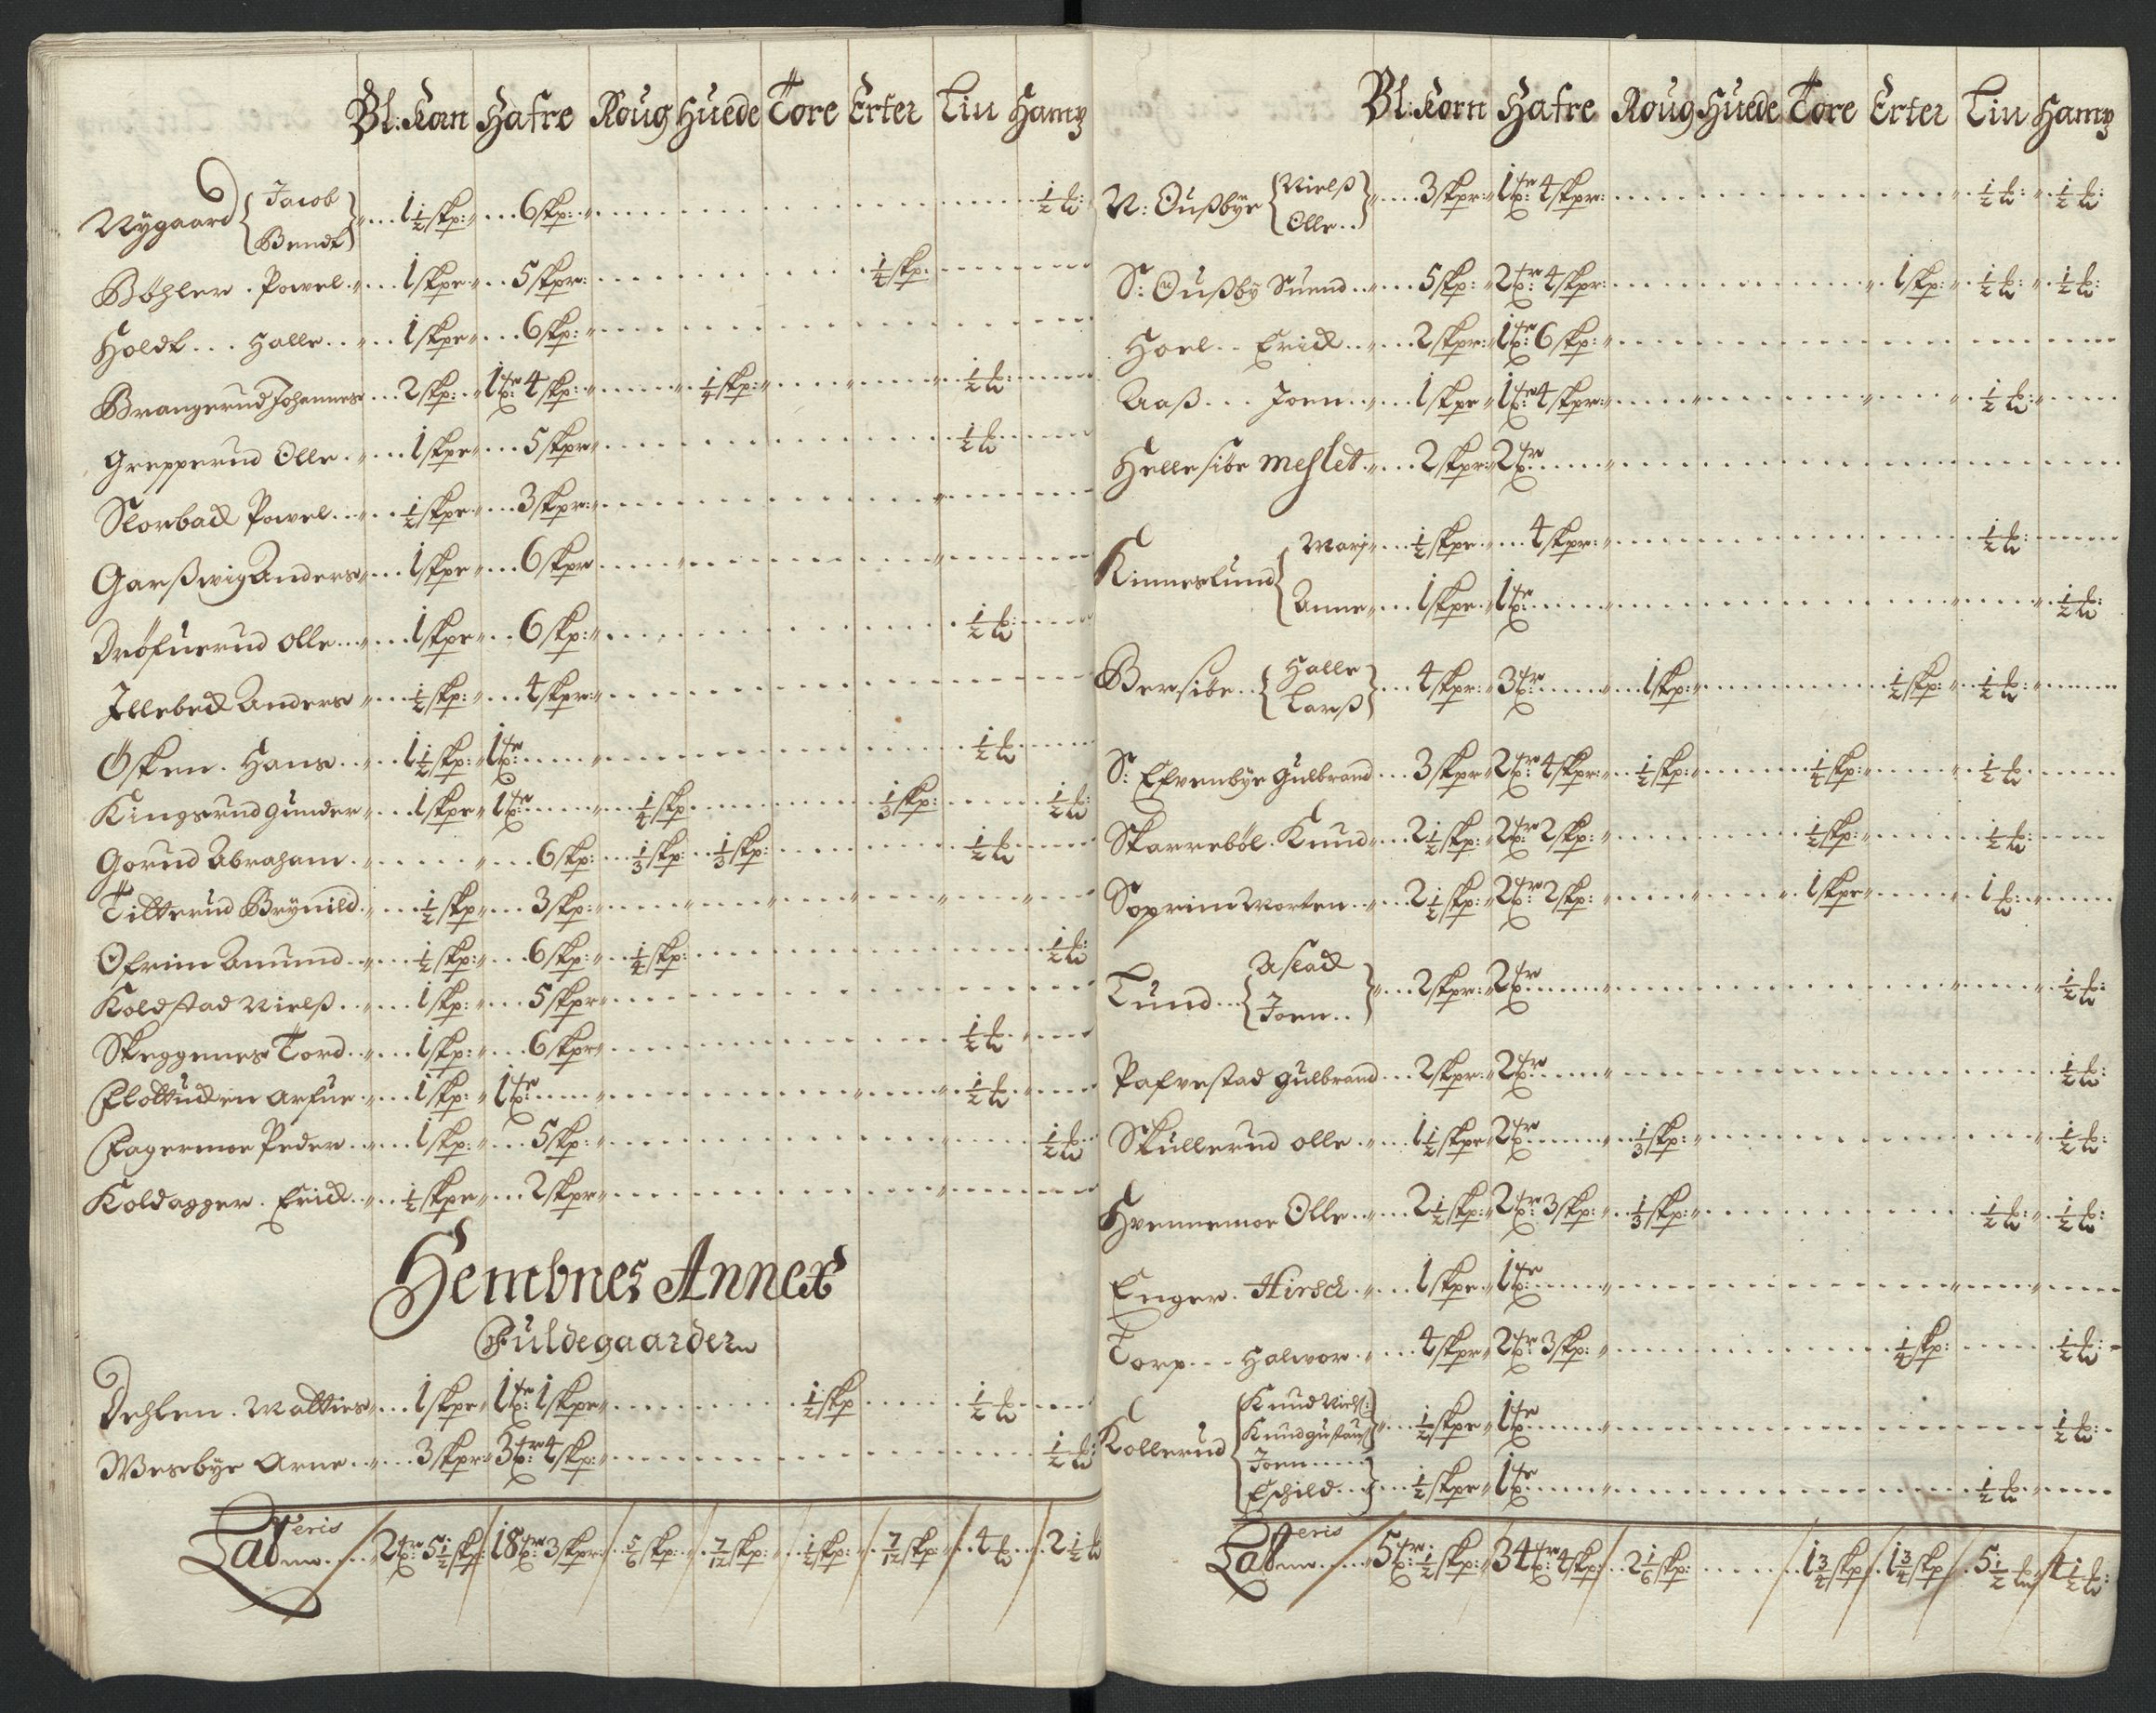 Bl: Korn Hafre Roug Huede Tore Erter Lin Hamp
Nygaard { Jacob Bendt } 1½ skp: 6 skp: ½ ℔:
Böhler. Powel 1 skpe 5 skpr: ¼ skp:
Holdt... Halle.. 1 skpe 6 skp:
Brangerud Johannes 2 skp: 1 tr: 4 skp: ¼ skp: ½ ℔:
Grepperud Olle 1 skpe 5 skpr ½ ℔
Slorback Powel ½ skpe 3 skpr:
Garßwig Anders 1 skpe 6 skpr
Dröfuerud Olle 1 skpe 6 skp: ½ ℔:
Illebeck Anders ½ skp: 4 skpr:
Ösken. Hans 1½ skp: 1 tr: ½ ℔
Kingsrud Gunder 1 skpe 1 tr: ¼ skp ⅓ skp: ½ ℔:
Gorud Abraham 6 skp: ⅓ skp: ⅓ skp: ½ ℔
Titterud Brynild ½ skp 3 skp:
Ofrim Amund ½ skp: 6 skp: ¼ skp: ½ ℔:
Koldstad Nielß 1 skp: 5 skpr
Skeggenes Tord 1 skp: 6 skpr ½ ℔
Flottucken Arfue 1 skp: 1 tr: ½ ℔
Fagermoe Peder 1 skp: 5 skp: ½ ℔:
Koldagger. Erick ½ skpe 2 skpr
Hembnes Annex
Fuldegaarder
Dehlen. Matties 1 skpe 1 tr: 1 skpe ½ skp ½ ℔
Wesebye Arne 3 skpr 3 tr: 4 skp: ½ ℔:
Lateris 2 tr: 5½ skp: 18 tr: 3 skpr: 5/6 skp: 7/12 skp: ½ skp: 7/12 skp: 4 ℔ 2½ ℔
Bl: Korn Hafre Roug Huede Tore Erter Lin Hamp
N: Oußbye { Nielß Olle.. } 3 skpr: 1 tr: 4 skpr: ½ ℔: ½ ℔:
S: Oußby Suend 5 skp: 2 tr: 4 skpr: 1 skp: ½ ℔: ½ ℔:
Hoel.. Erick 2 skpr: 1 tr: 6 skp:
Aaß... Joen 1 skpe 1 tr: 4 skpr: ½ ℔:
Hellesiöe Meslet 2 skpr: 2 tr:
Kinneslund { Marj ½ skpe 4 skpr: ½ ℔:
Anne 1 skpe 1 tr: ½ ℔:
Bersiöe.. { Halle Larß } 4 skpr: 3 tr: 1 skp: ½ skp: ½ ℔:
S: Efvenbye Gulbrand 3 skpr 2 tr: 4 skpr: ½ skp: ¼ skp: ½ ℔
Skarreböl. Knud 2½ skp: 2 tr: 2 skp: ½ skp: ½ ℔:
Soprim Morten 2½ skp: 2 tr: 2 skp: 1 skpe 1 ℔:
Lund.. { Aslack Joen.. } 2 skpr: 2 tr: ½ ℔:
Pafvestad Gulbrand 2 skpr: 2 tr: ½ ℔:
Skullerud Olle 1½ skpe 2 tr: ⅓ skp: ½ ℔:
Hvennemoe Olle 2½ skp: 2 tr: 3 skp: ⅓ skp: ½ ℔: ½ ℔:
Enger. Hirsch 1 skpe 1 tr:
Torp... Halvor 4 skpr 2 tr: 3 skp: ¼ skp: ½ ℔:
Kollerud { Knud Nielß:
Knud Gustauß } ½ skpe 1 tr: ½ ℔:
Joen
Eskild.. } ½ skpe 1 tr: ½ ℔
Lateris 5 tr: ½ skp: 34 tr: 4 skp: 2 1/6 skp: 1¾ skp 1¾ skp 5½ ℔ 4½ ℔: